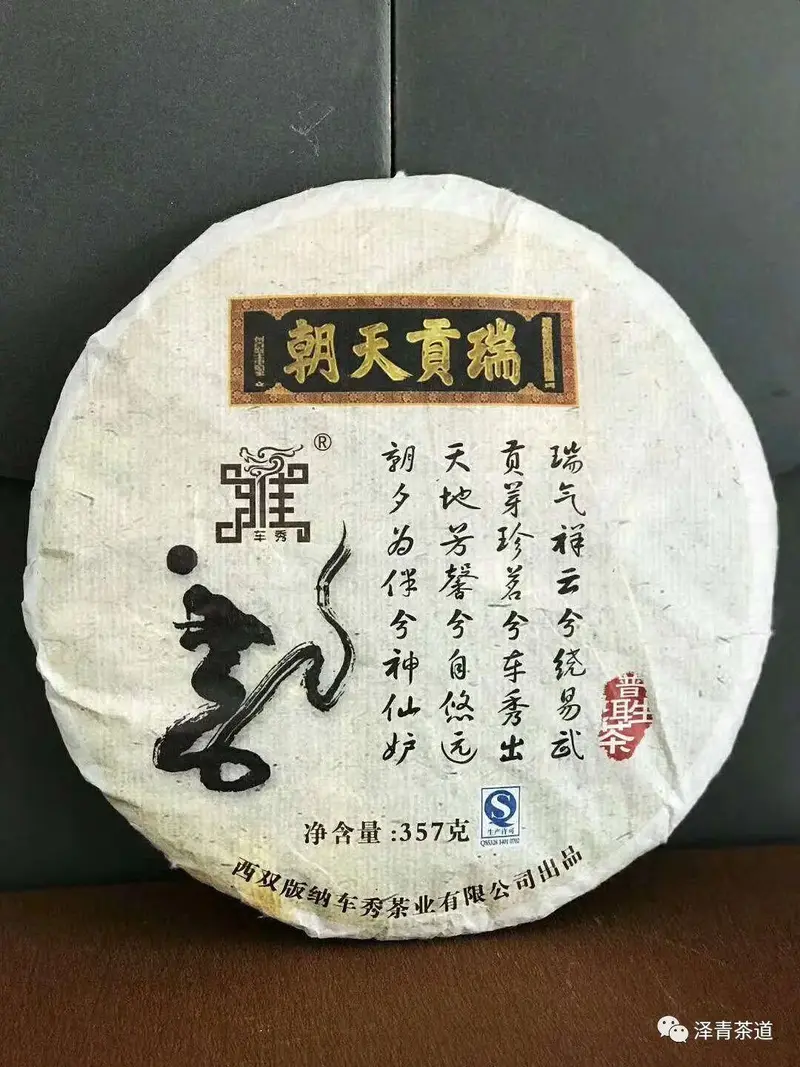 瑞貢天朝
®
车秀
瑞气祥云兮绕易武
贡芽珍茗兮车秀出
天地芳馨兮自悠远
朝夕为伴兮神仙妒
普洱生茶
净含量:357克
生产许可
西双版纳车秀茶业有限公司出品
泽青茶道